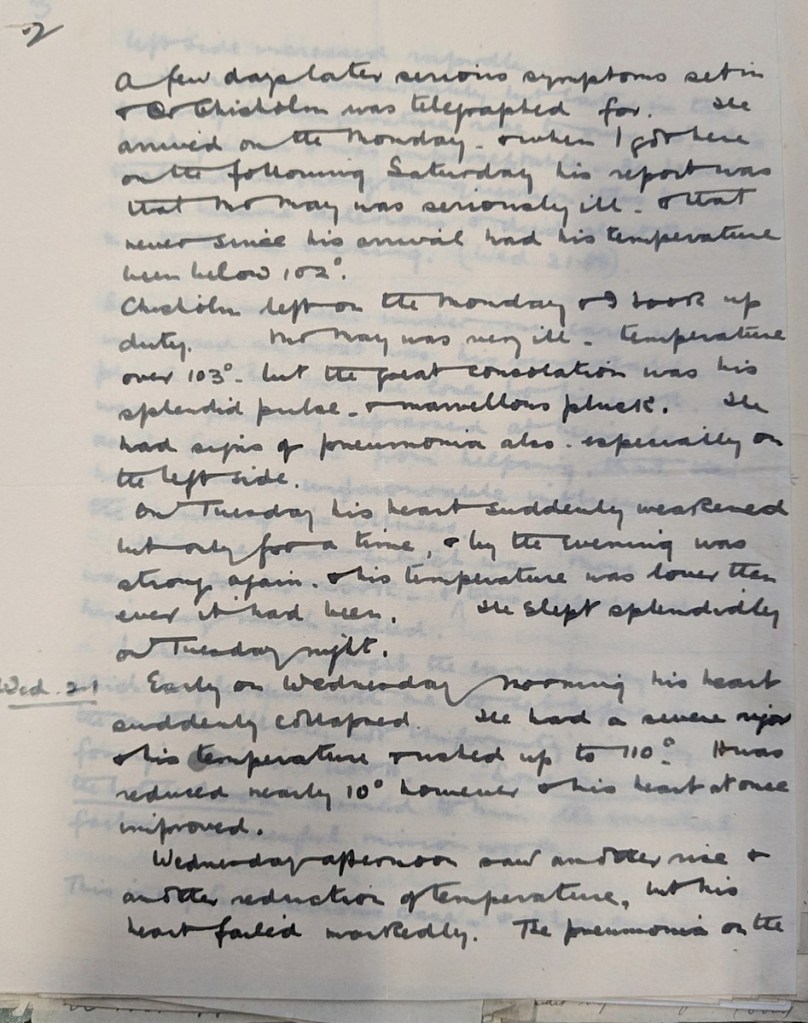 2
A few days later serious symptoms set in
& Dr Chisholm was telegraphed for. He
arrived on the Monday - & when I got here
on the following Saturday his report was
that Mr May was seriously ill - & that
never since his arrival had his temperature
been below 102°.
Chisholm left on the Monday & I took up
duty. Mr May was very ill - temperature
over 103° - but the great consolation was his
splendid pulse - & marvellous pluck. He
had signs of pneumonia also - especially on
the left side.
On Tuesday his heart suddenly weakened
but only for a time, & by the evening was
strong again. & his temperature was lower than
ever it had been. He slept splendidly
on Tuesday night.
Wed. 21 Early on Wednesday morning his heart
suddenly collapsed. He had a severe rigor
& his temperature rushed up to 110°. It was
reduced nearly 10° however & his heart at once
improved.
Wednesday afternoon saw another rise &
another reduction of temperature, but his
heart failed markedly. The pneumonia on the